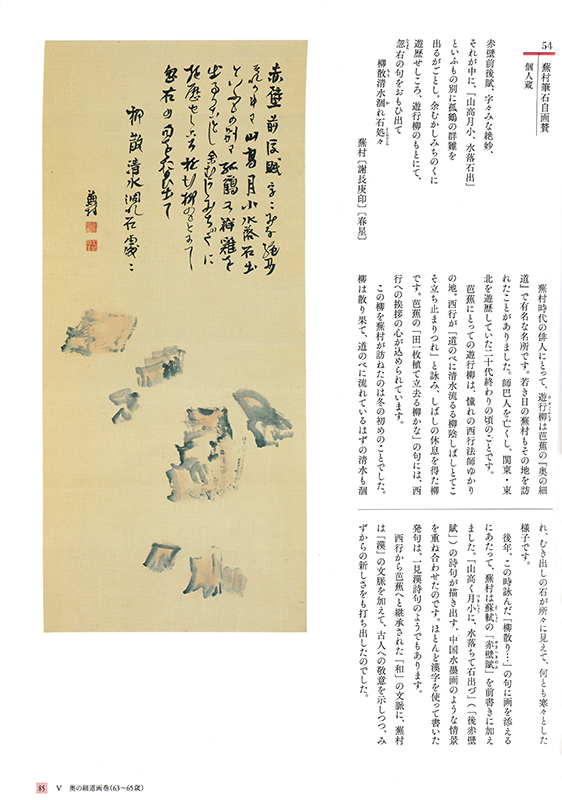 54
蕪村筆石自画賛
個人蔵
赤壁前後賦、字々みな絶妙、
それが中に、「山高月小、水落石出」
といふもの別に孤鶴の群雞を
出るがごとし。余むかしみちのくに
遊歴せしころ、遊行柳のもとにて、
忽右の句をおもひ出て
柳散清水涸れ石処々
蕪村〔謝長庚印〕〔春星〕
蕪村時代の俳人にとって、遊行柳は芭蕉の『奥の細
道』で有名な名所です。若き日の蕪村もその地を訪
れたことがありました。師巴人を亡くし、関東・東
北を遊歴していた二十代終わりの頃のことです。
芭蕉にとっての遊行柳は、憧れの西行法師ゆかり
の地。西行が「道のべに清水流るる柳陰しばしとてこ
そ立ち止まりつれ」と詠み、しばしの休息を得た柳
です。芭蕉の「田一枚植て立去る柳かな」の句には、西
行への挨拶の心が込められています。
この柳を蕪村が訪ねたのは冬の初めのことでした。
柳は散り果て、道のべに流れているはずの清水も涸
れ、むき出しの石が所々に見えて、何とも寒々とした
様子です。
後年、この時詠んだ「柳散り…」の句に画を添える
にあたって、蕪村は蘇軾の「赤壁賦」を前書きに加え
ました。「山高く月小に、水落ちて石出づ」(「後赤壁
賦」)の詩句が描き出す、中国水墨画のような情景
を重ね合わせたのです。ほとんど漢字を使って書いた
発句は、一見漢詩句のようでもあります。
西行から芭蕉へと継承された「和」の文脈に、蕪村
は「漢」の文脈を加えて、古人への敬意を示しつつ、み
ずからの新しさをも打ち出したのでした。
赤壁前後賦字ゝみな絶妙
それか中に山高月小水落石出
といふもの別に孤鶴の群雞を
出るかことし余むかしみちのくに
遊歴せしころ遊行柳のもとにて
忽右の句をおもひ出て
柳散清水涸れ石處ゝ
蕪村
85 V 奥の細道画巻(63〜65歳)